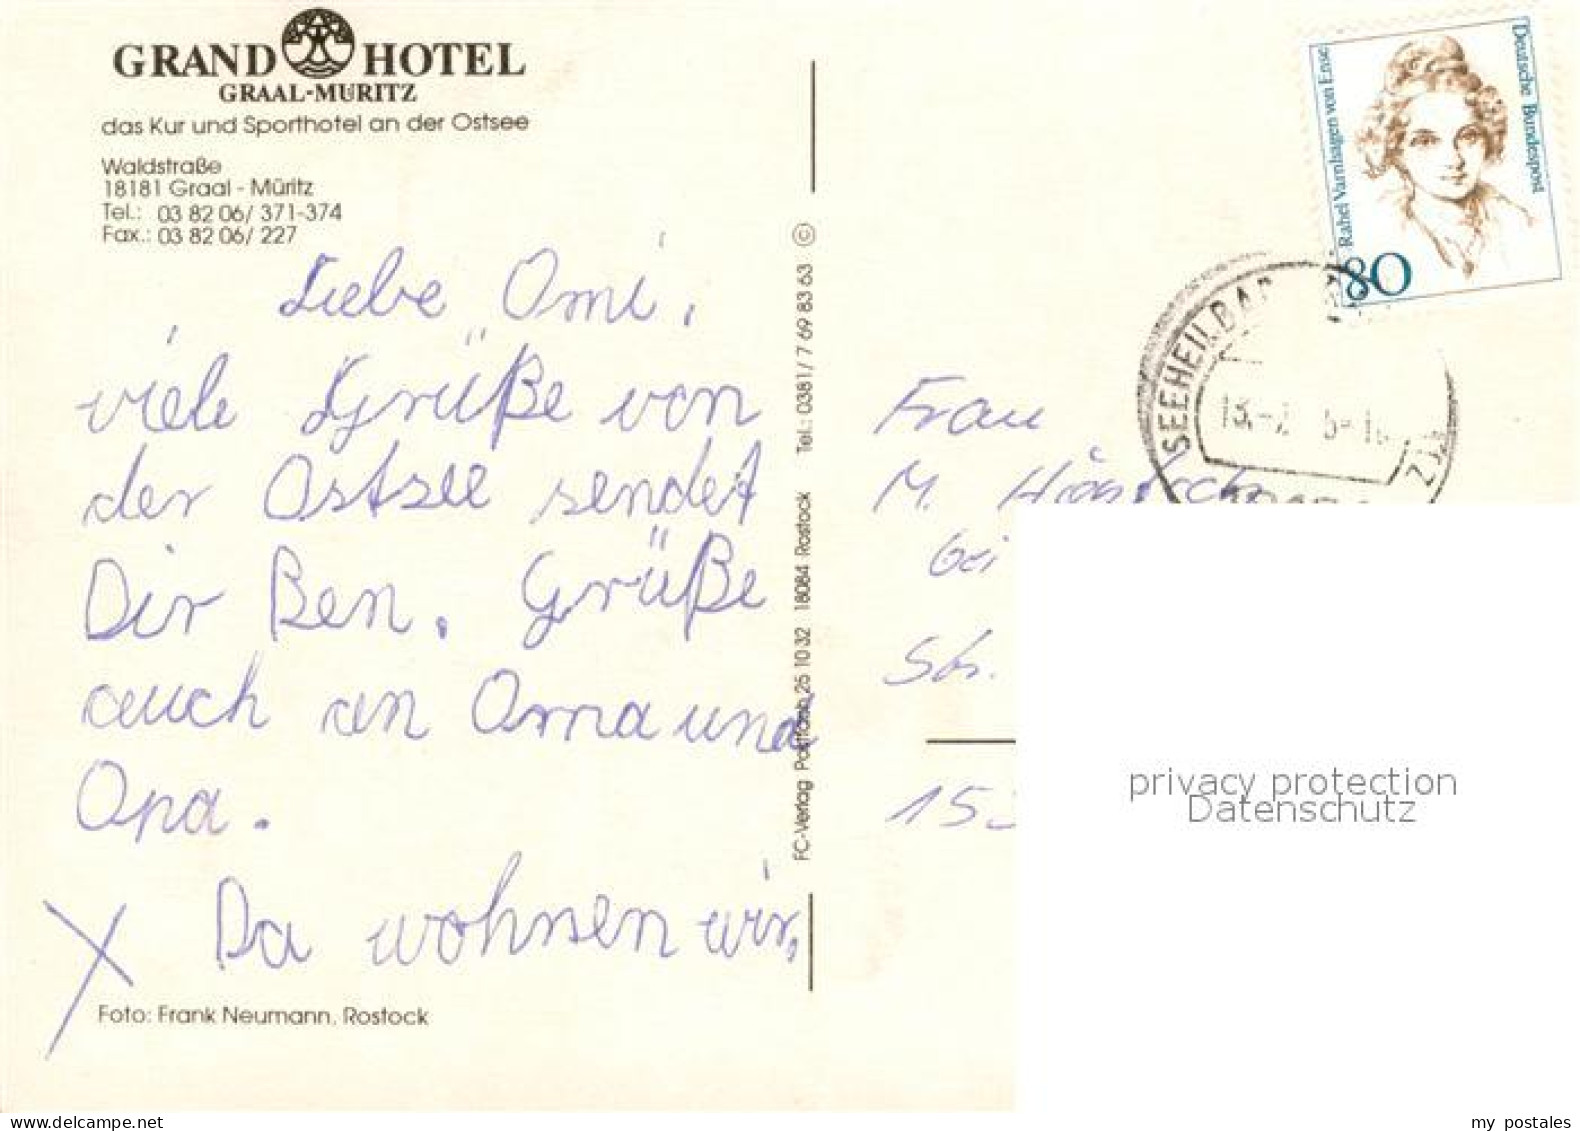 GRAND HOTEL
GRAAL-MÜRITZ
das Kur und Sporthotel an der Ostsee
Waldstraße
18181 Graal - Müritz
Tel.: 03 82 06/ 371-374
Fax.: 03 82 06/ 227
Liebe Omi,
viele Grüße von
der Ostsee sendet
Dir Ben. Grüße
auch an Oma und
Opa.
X Da wohnen wir.
Foto: Frank Neumann, Rostock
FC-Verlag Postfach 25 10 32 18084 Rostock Tel.: 0381/ 7 69 83 63 ©
Deutsche Bundespost
Rahel Varnhagen von Ense
80
SEEHEILBAD
Frau
M.
bei
Str.
153
privacy protection
Datenschutz
www.delcampe.net
my postales